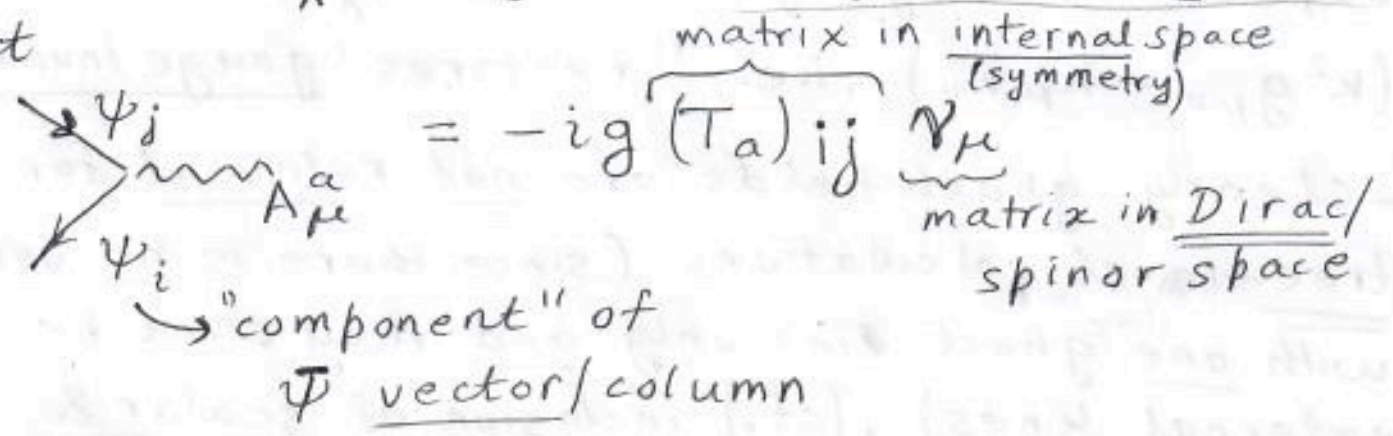 t
matrix in internal space
(symmetry)
ψj = -ig (Ta)ij γμ
Aμa
matrix in Dirac/
spinor space
ψi
→ "component" of
Ψ vector/column